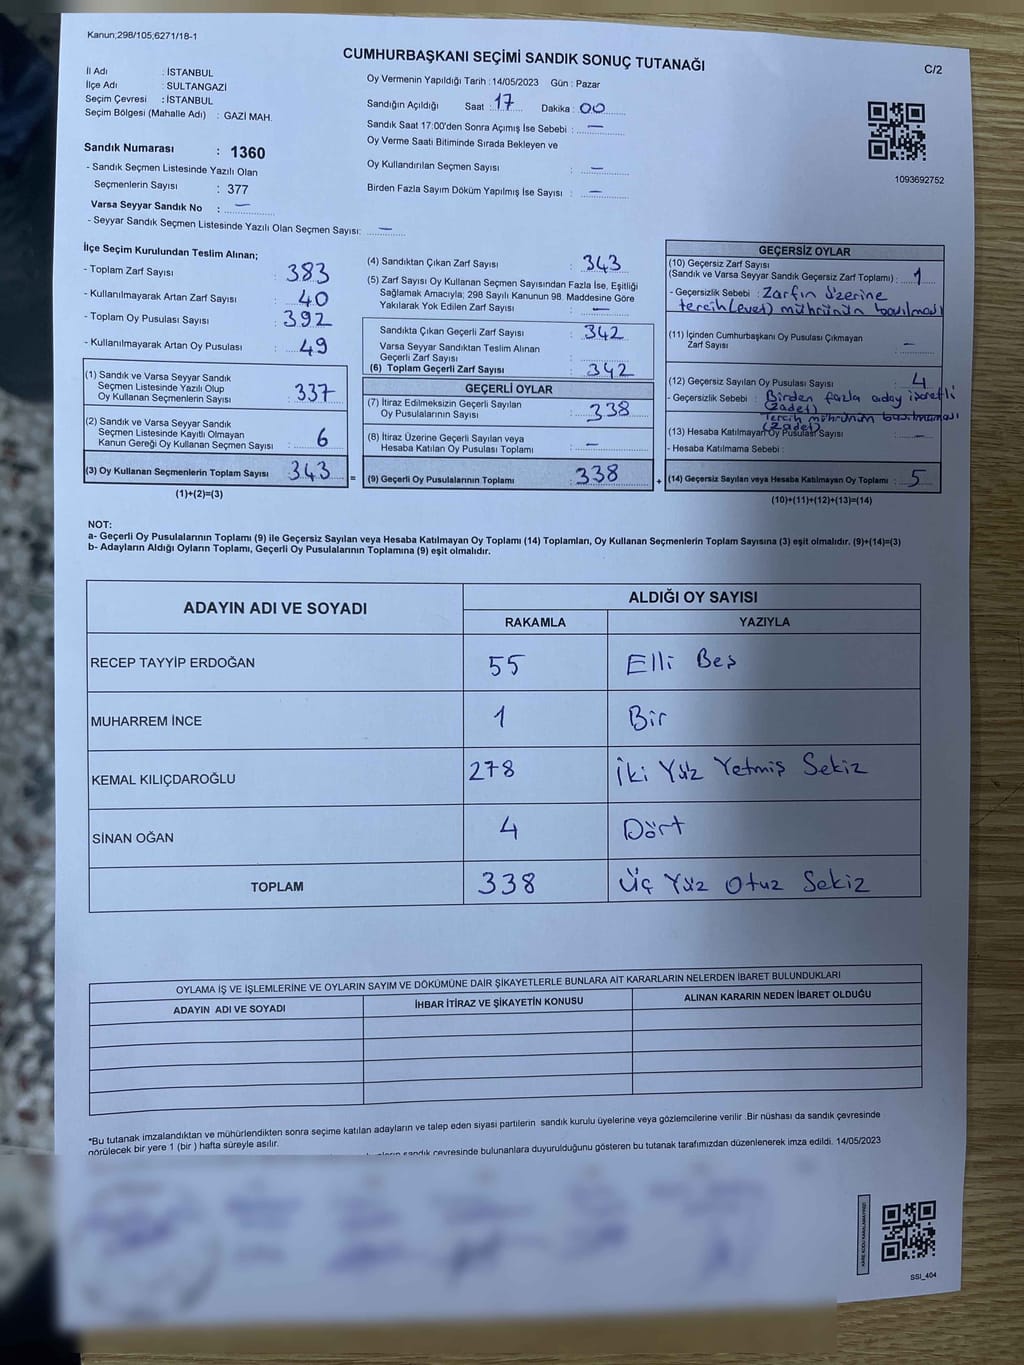 Kanun;298/105,6271/18-1
CUMHURBAŞKANI SEÇİMİ SANDIK SONUÇ TUTANAĞI
C/2
İl Adı : İSTANBUL
İlçe Adı : SULTANGAZİ
Seçim Çevresi : İSTANBUL
Seçim Bölgesi (Mahalle Adı) : GAZİ MAH.
Oy Vermenin Yapıldığı Tarih : 14/05/2023 Gün : Pazar
Sandığın Açıldığı Saat : 17 Dakika : 00
Sandık Saat 17:00'den Sonra Açımış İse Sebebi : —
Oy Verme Saati Bitiminde Sırada Bekleyen ve
Oy Kullandırılan Seçmen Sayısı : —
Birden Fazla Sayım Döküm Yapılmış İse Sayısı : —
1093692752
Sandık Numarası : 1360
- Sandık Seçmen Listesinde Yazılı Olan
Seçmenlerin Sayısı : 377
Varsa Seyyar Sandık No : —
- Seyyar Sandık Seçmen Listesinde Yazılı Olan Seçmen Sayısı: —
İlçe Seçim Kurulundan Teslim Alınan;
- Toplam Zarf Sayısı : 383
- Kullanılmayarak Artan Zarf Sayısı : 40
- Toplam Oy Pusulası Sayısı : 392
- Kullanılmayarak Artan Oy Pusulası : 49
(1) Sandık ve Varsa Seyyar Sandık
Seçmen Listesinde Yazılı Olup
Oy Kullanan Seçmenlerin Sayısı : 337
(2) Sandık ve Varsa Seyyar Sandık
Seçmen Listesinde Kayıtlı Olmayan
Kanun Gereği Oy Kullanan Seçmen Sayısı : 6
(3) Oy Kullanan Seçmenlerin Toplam Sayısı : 343
(1)+(2)=(3)
=
(4) Sandıktan Çıkan Zarf Sayısı : 343
(5) Zarf Sayısı Oy Kullanan Seçmen Sayısından Fazla İse, Eşitliği
Sağlamak Amacıyla; 298 Sayılı Kanunun 98. Maddesine Göre
Yakılarak Yok Edilen Zarf Sayısı : —
Sandıkta Çıkan Geçerli Zarf Sayısı : 342
Varsa Seyyar Sandıktan Teslim Alınan
Geçerli Zarf Sayısı :
(6) Toplam Geçerli Zarf Sayısı : 342
GEÇERLİ OYLAR
(7) İtiraz Edilmeksizin Geçerli Sayılan
Oy Pusulalarının Sayısı : 338
(8) İtiraz Üzerine Geçerli Sayılan veya
Hesaba Katılan Oy Pusulası Toplamı : —
(9) Geçerli Oy Pusulalarının Toplamı : 338
+
GEÇERSİZ OYLAR
(10) Geçersiz Zarf Sayısı
(Sandık ve Varsa Seyyar Sandık Geçersiz Zarf Toplamı) : 1
- Geçersizlik Sebebi : Zarfın üzerine
tercih(evet) mührünün basılması
(11) İçinden Cumhurbaşkanı Oy Pusulası Çıkmayan
Zarf Sayısı : —
(12) Geçersiz Sayılan Oy Pusulası Sayısı : 4
- Geçersizlik Sebebi : Birden fazla aday işaretli
(2adet)
Tercih mührünün basılmaması
(2adet)
(13) Hesaba Katılmayan Oy Pusulası Sayısı : —
- Hesaba Katılmama Sebebi :
(14) Geçersiz Sayılan veya Hesaba Katılmayan Oy Toplamı : 5
(10)+(11)+(12)+(13)=(14)
NOT:
a- Geçerli Oy Pusulalarının Toplamı (9) ile Geçersiz Sayılan veya Hesaba Katılmayan Oy Toplamı (14) Toplamları, Oy Kullanan Seçmenlerin Toplam Sayısına (3) eşit olmalıdır. (9)+(14)=(3)
b- Adayların Aldığı Oyların Toplamı, Geçerli Oy Pusulalarının Toplamına (9) eşit olmalıdır.
ADAYIN ADI VE SOYADI
ALDIĞI OY SAYISI
RAKAMLA YAZIYLA
RECEP TAYYİP ERDOĞAN 55 Elli Beş
MUHARREM İNCE 1 Bir
KEMAL KILIÇDAROĞLU 278 İki Yüz Yetmiş Sekiz
SİNAN OĞAN 4 Dört
TOPLAM 338 Üç Yüz Otuz Sekiz
OYLAMA İŞ VE İŞLEMLERİNE VE OYLARIN SAYIM VE DÖKÜMÜNE DAİR ŞİKAYETLERLE BUNLARA AİT KARARLARIN NELERDEN İBARET BULUNDUKLARI
ADAYIN ADI VE SOYADI İHBAR İTİRAZ VE ŞİKAYETİN KONUSU ALINAN KARARIN NEDEN İBARET OLDUĞU
*Bu tutanak imzalandıktan ve mühürlendikten sonra seçime katılan adayların ve talep eden siyasi partilerin sandık kurulu üyelerine veya gözlemcilerine verilir .Bir nüshası da sandık çevresinde
görülecek bir yere 1 (bir ) hafta süreyle asılır.
sandık çevresinde bulunanlara duyurulduğunu gösteren bu tutanak tarafımızdan düzenlenerek imza edildi. 14/05/2023
KARE KODU KARALAMAYINIZ!
SSI_404